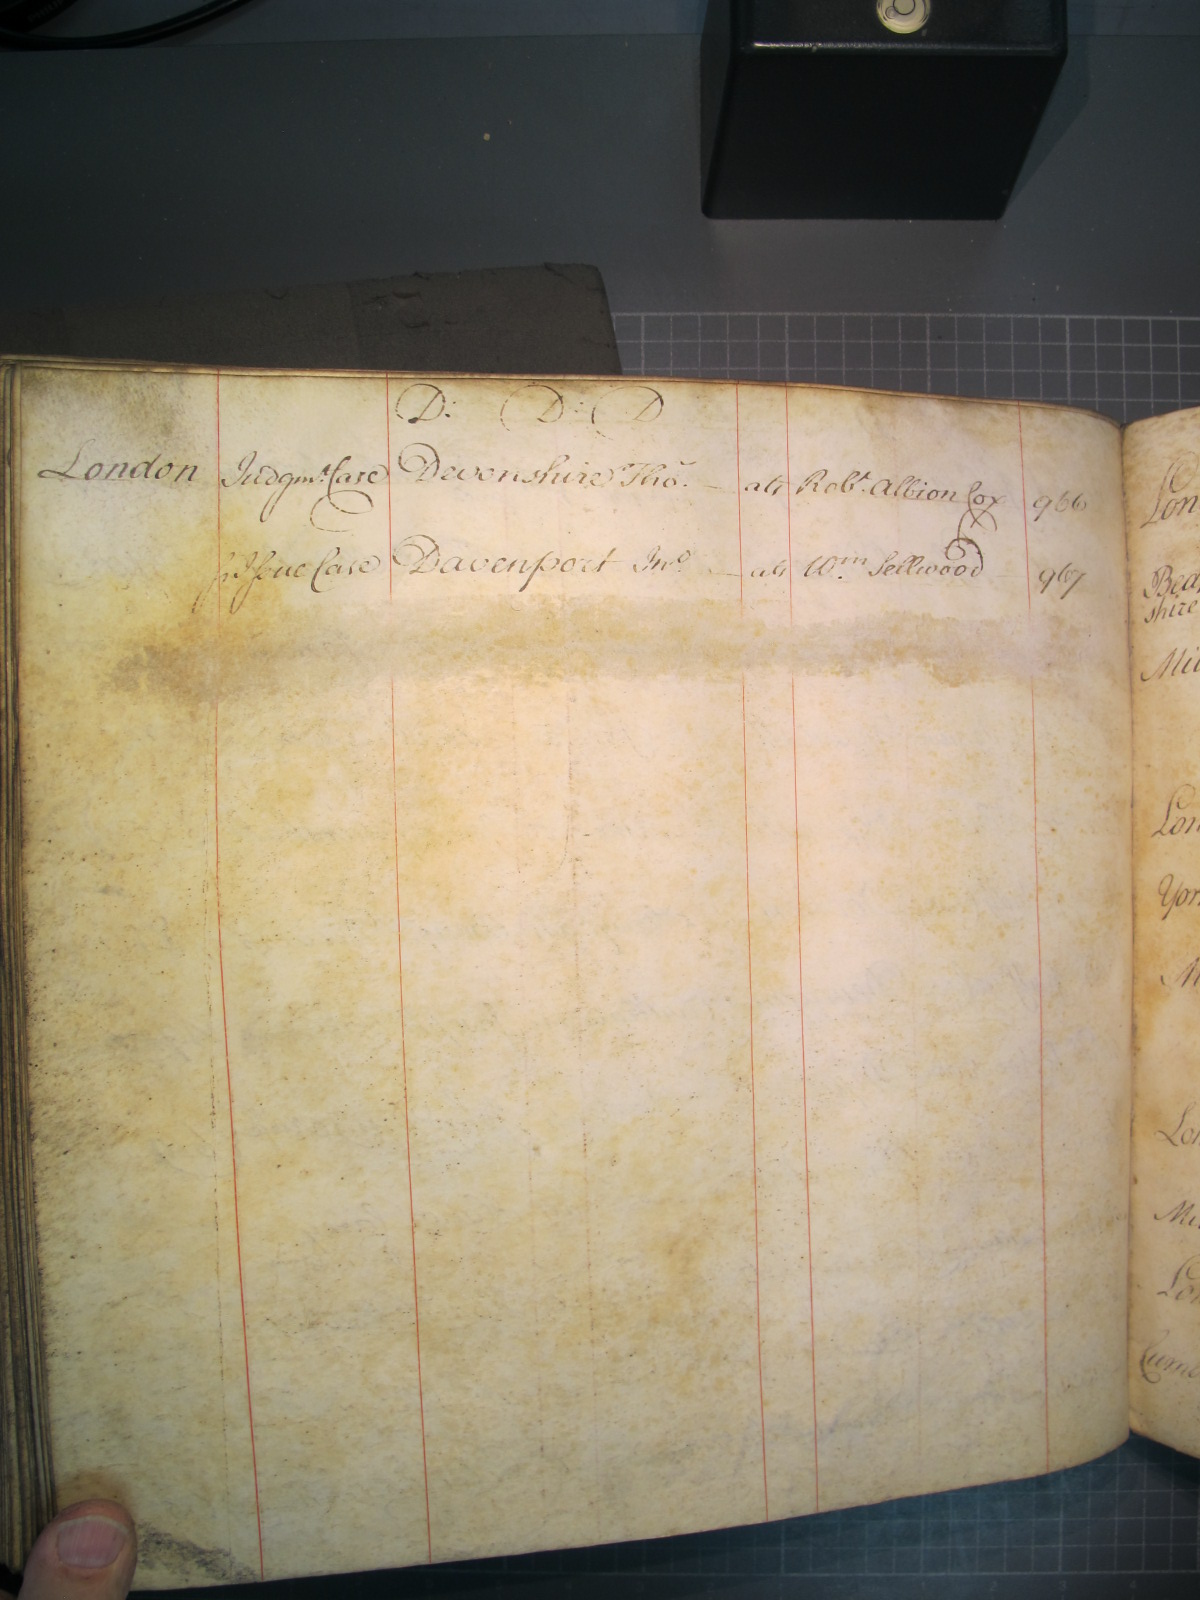 D: D: D
London Judgmt. Case Devonshire Thos. ats Robt. Albion Cox 966
Issue Case Davenport Jno. ats Wm. Sellwood 967
Lon
Bed
shire
Lon
Yor
Lon
Lon